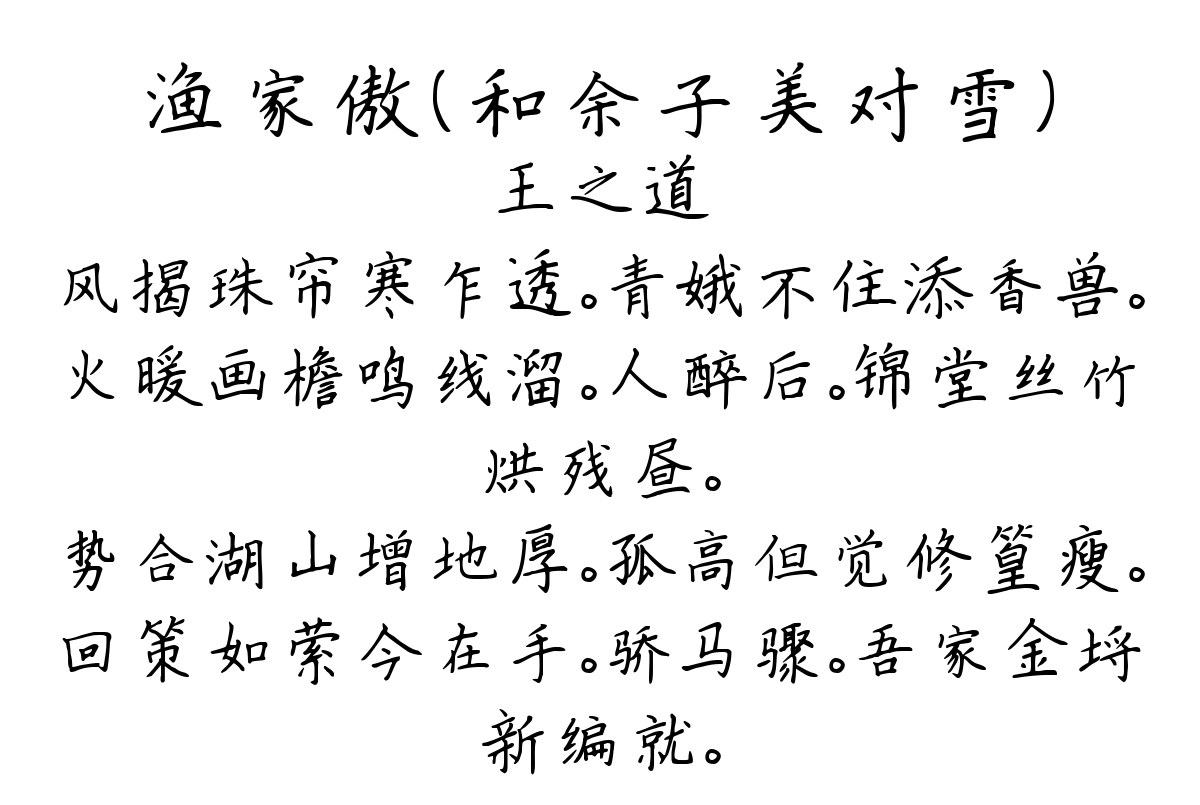 渔家傲(和余子美对雪)
王之道
风揭珠帘寒乍透。青娥不住添香兽。
火暖画檐鸣线溜。人醉后。锦堂丝竹
烘残昼。
势合湖山增地厚。孤高但觉修篁瘦。
回策如萦今在手。骄马骤。吾家金埒
新编就。